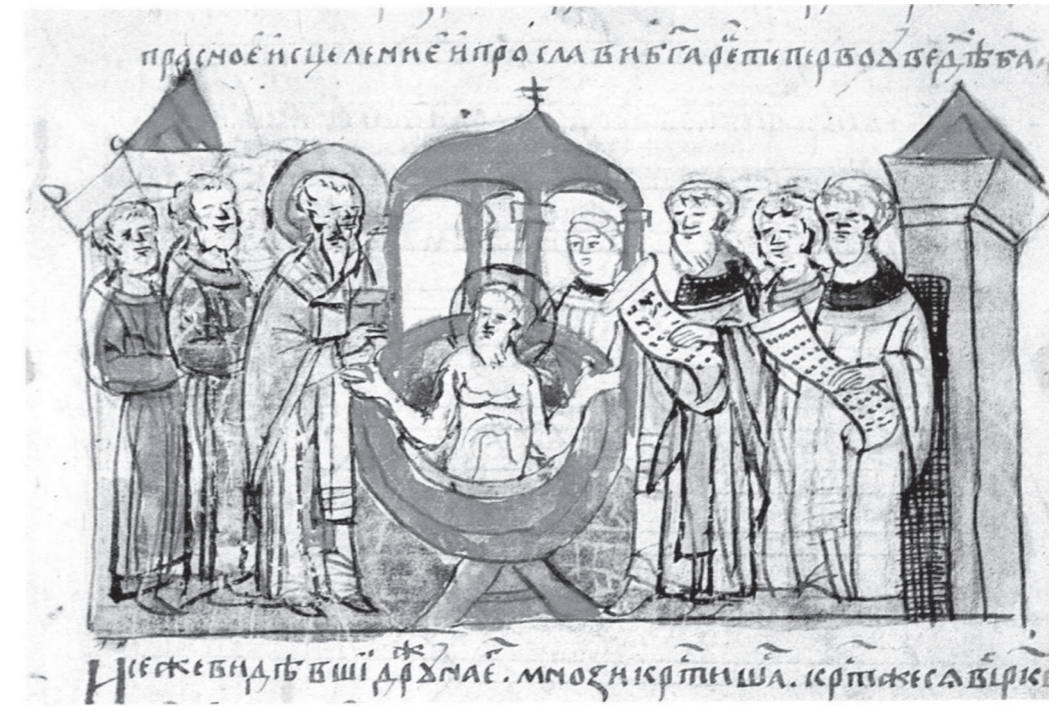 прасное исцеление и прослави бг҃а ре҃ теперво ꙋведѣ ба҃
И се же видѣвшї дрꙋжнае҃ . мнози кр҃тишѧ . кр҃т же сѧ